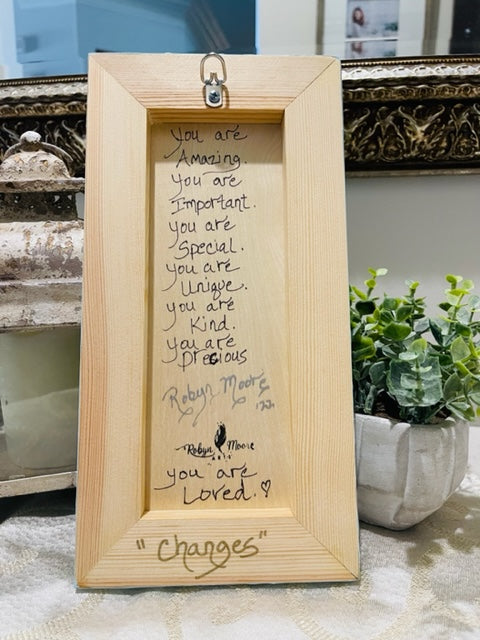 You are
Amazing.
You are
Important.
you are
Special.
you are
Unique.
you are
Kind.
you are
Precious
Robyn Moore
'22
Robyn Moore
ARTS
you are
Loved. ♡
"Changes"